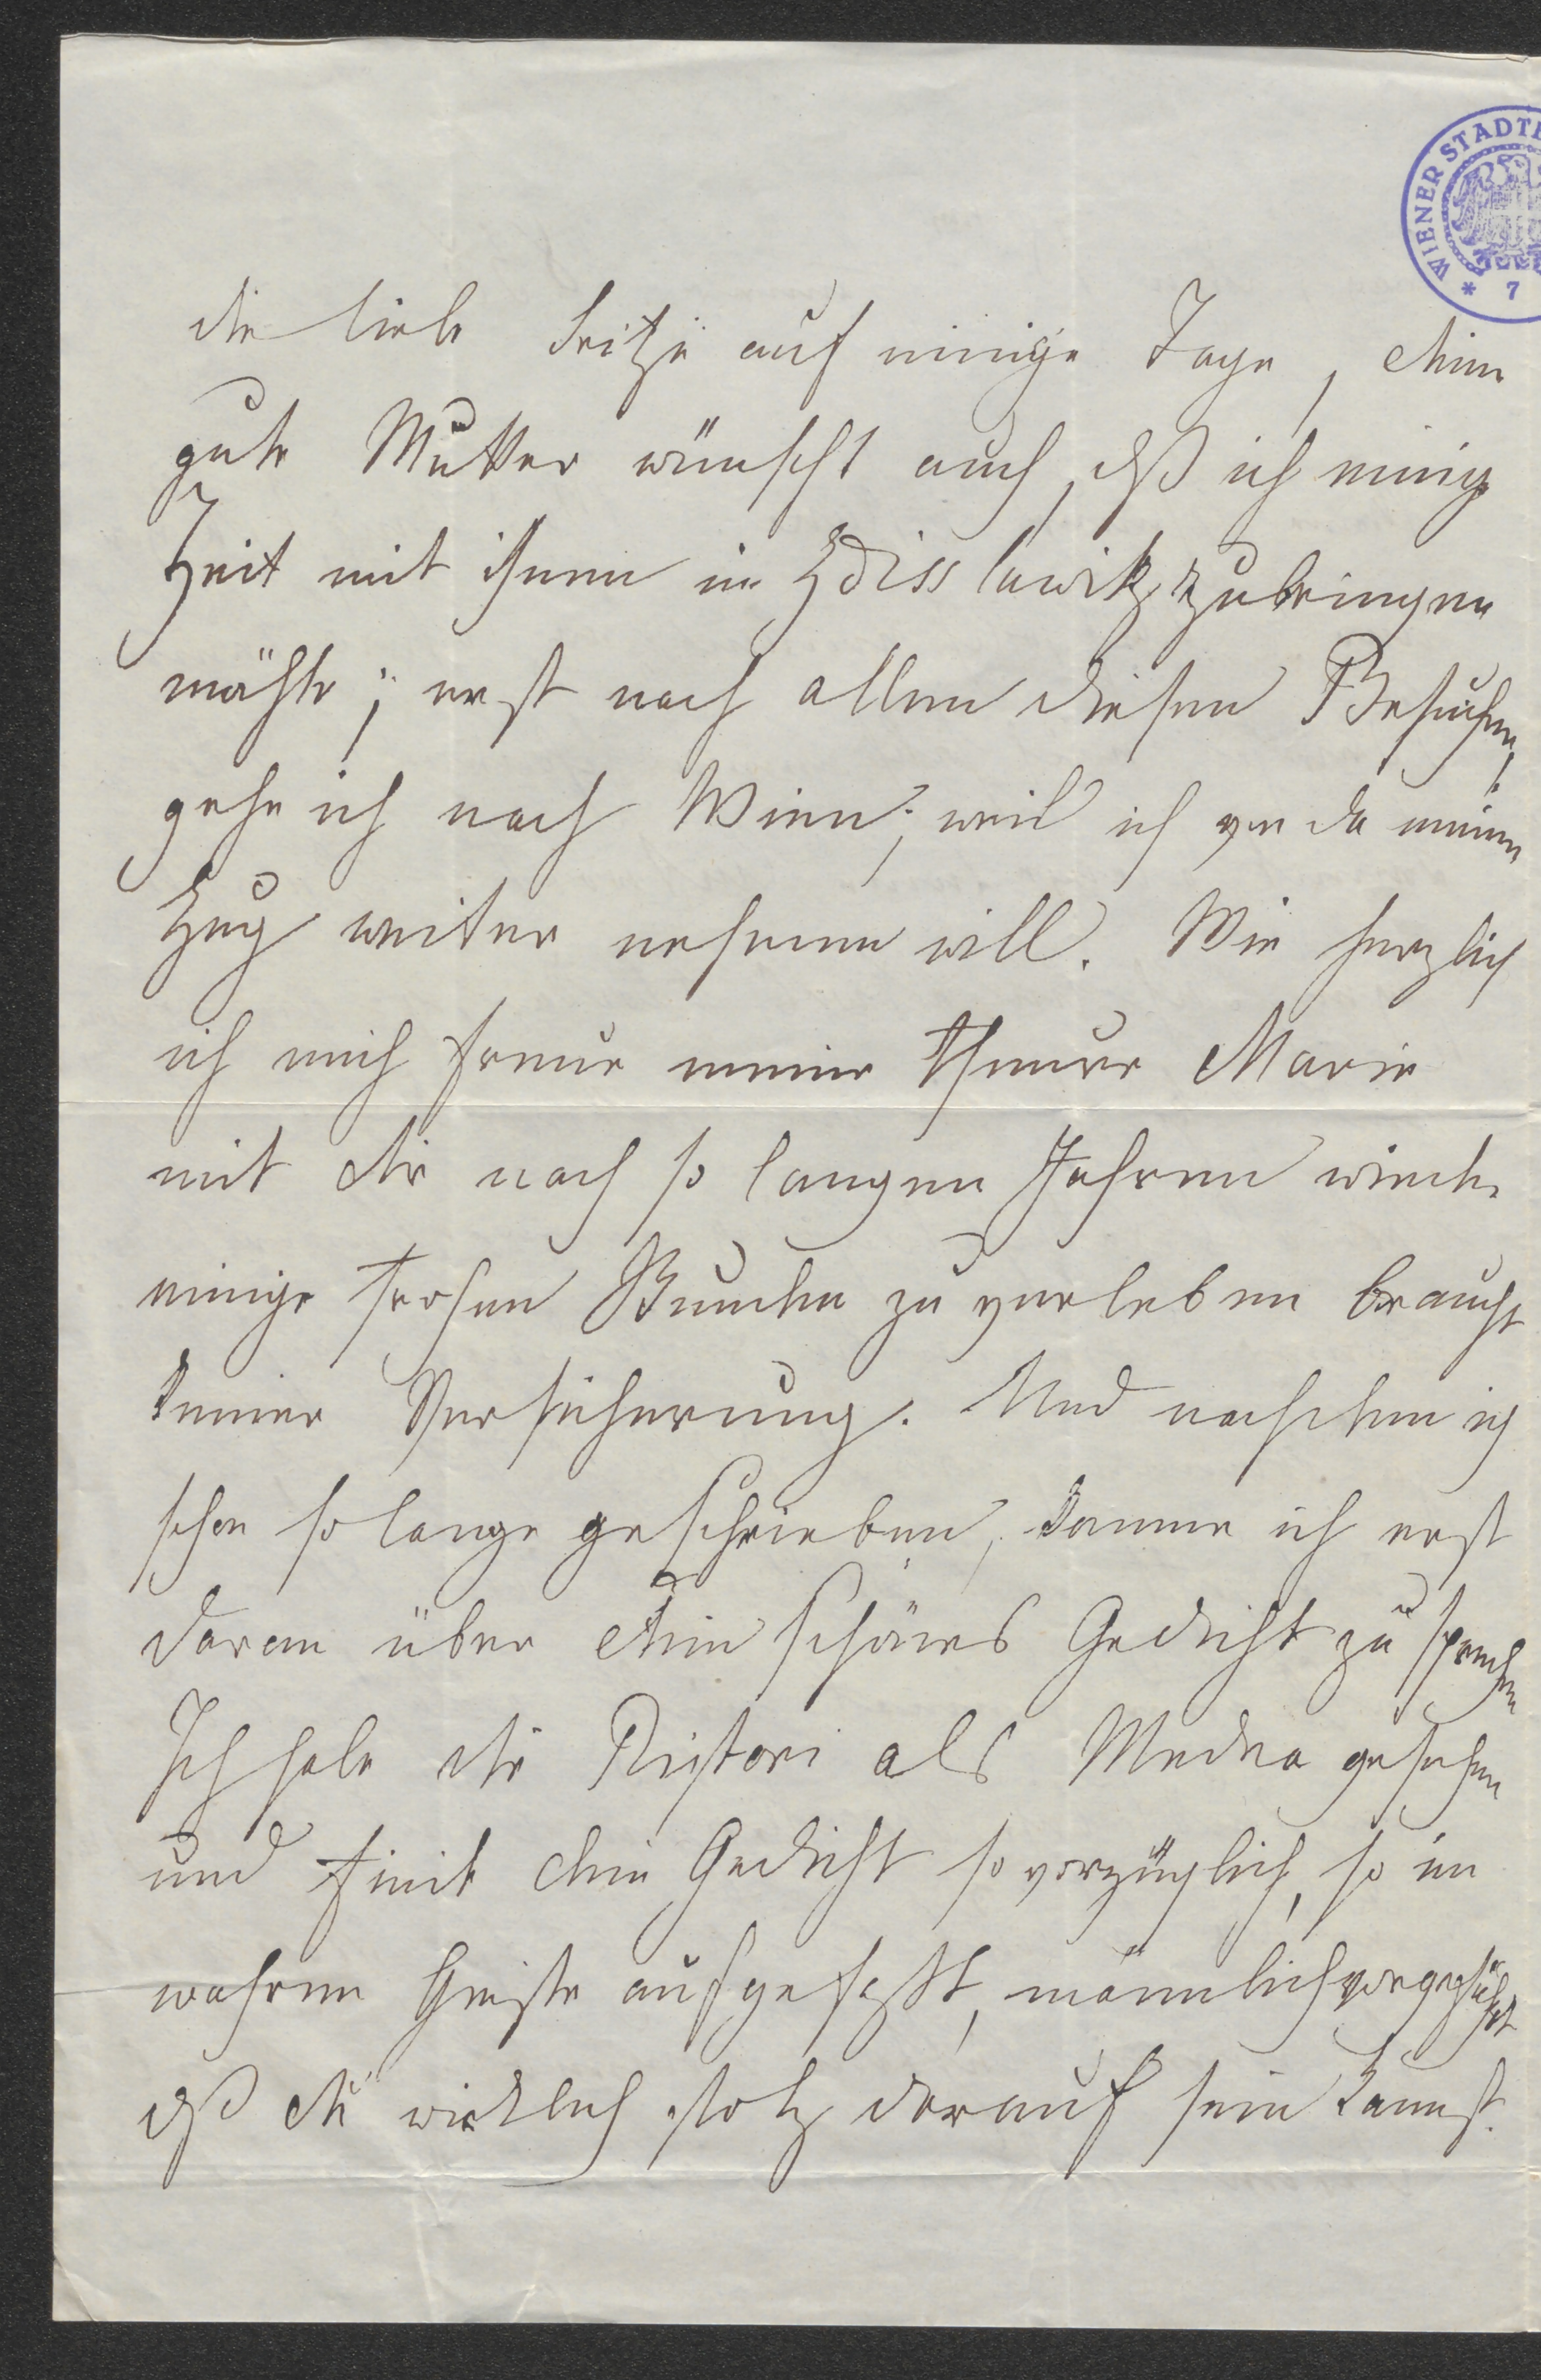 WIENER STADT
* 7
die liebe Fritzi auf einige Tage, deine
gute Mutter wünscht auch, daß ich einige
Zeit mit ihnen in Zdisslawitz zubringen
möchte; erst nach allen diesen Besuchen,
gehe ich nach Wien; weil ich von da meinen
Zug weiter nehmen will. Wie herzlich
ich mich freue meine theure Marie
mit dir nach so langen Jahren wieder
einige frohen Stunden zu verleben braucht
keiner Versicherung. Und nachdem ich
schon so lange geschrieben, komme ich erst
daran über dein schönes Gedicht zu sprechen
Ich habe die Ristori als Medea gesehen
und finde dein Gedicht so vorzüglich, so im
wahren Geiste aufgefaßt, männlich vorgeführt
daß du wirklich stolz darauf sein kannst.